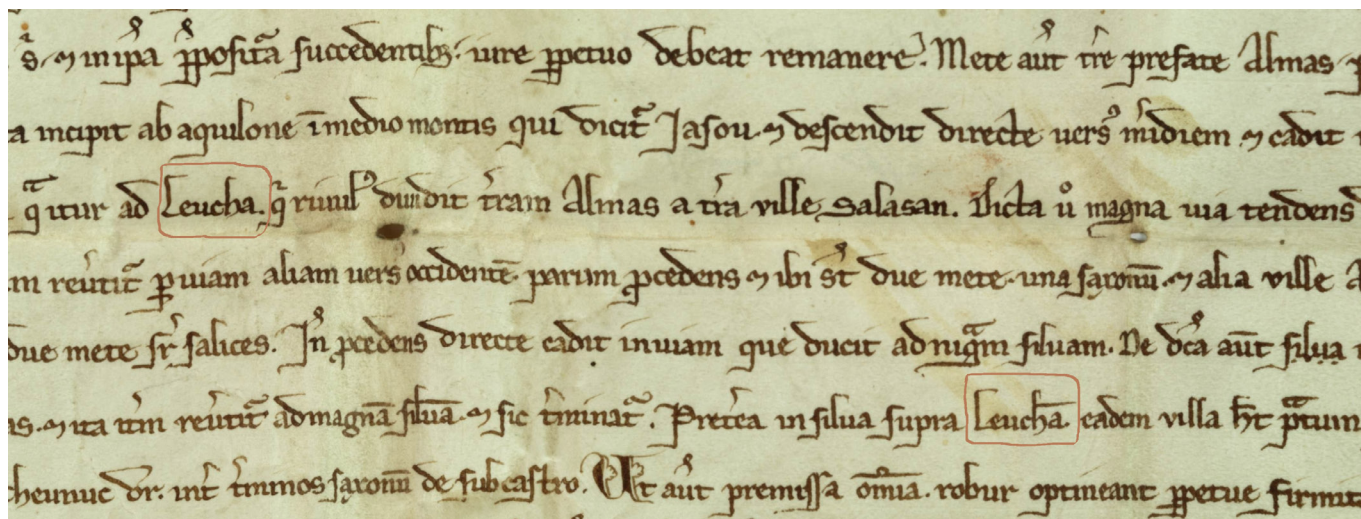 s̾. ⁊ in ip̄a p̱̾posit̄a succedentib;. iure ꝑpetuo debeat remanere. Mete aūt t̄re prefate Almas.
a incipit ab aquilone ī medio montis qui dicit᷑ Jasou. ⁊ descendit directe uersꝰ m̾idiem ⁊ cadit
q̄ itur ad Leucha. q̄ riuulꝰ diuidit t̾ram Almas a t̾ra ville Salasan. Dicta u̾o magna uia tendens
m reu̾tit᷑ ꝑ uiam aliam uersꝰ occidentē parum ꝓcedens ⁊ ibi s̄t due mete. una saxonū. ⁊ alia ville
due mete s̄r salices. Jn̄ ꝓcedens directe cadit in uiam que ducit ad nig̃m siluam. De dc̄a aūt silua
as. ⁊ ita it̾m reu̾tit᷑ ad magnā siluā ⁊ sic t̾minat᷑. Pret̾ea in silua supra Leuchā. eadem villa h̄t p̃tum
cheunuc dr̄. int̾ t̾minos saxonū de sub castro. Ut aūt premissa om̄ia. robur optineant ꝑpetue firmit